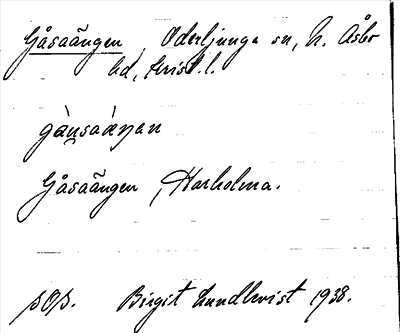 Gåsaängen, Oderljunga sn, N. Åsbo
hd, Krist. l.
gåsaäŋan
Gåsaängen, Harholma.
Birgit Lundkvist 1938.